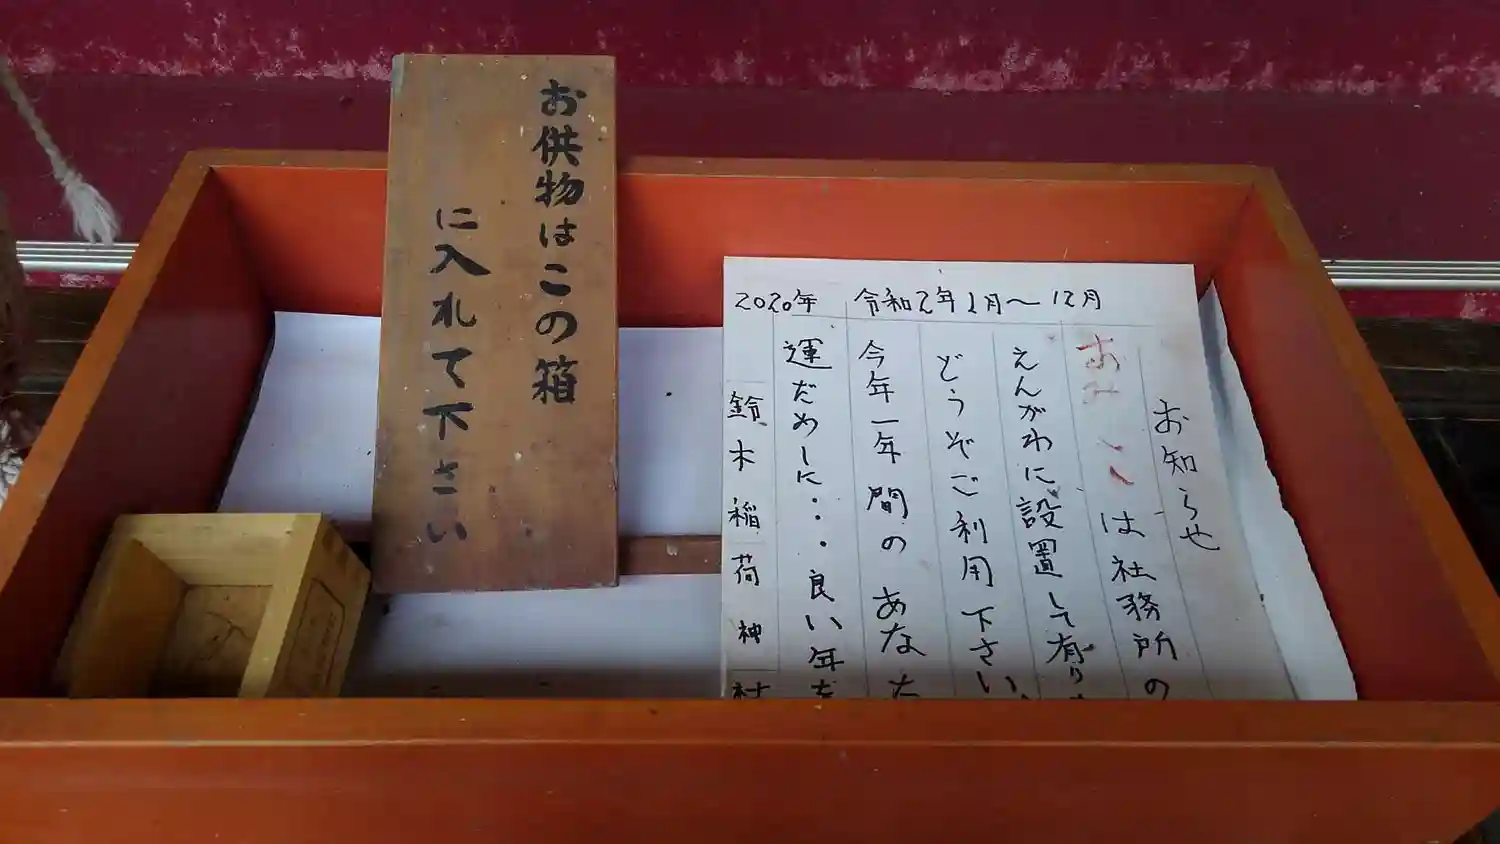 お供物はこの箱
に入れて下さい
2020年 令和2年1月～12月
お知らせ
おみくじは社務所の
えんがわに設置して有りま
どうぞご利用下さい。
今年一年間のあなた
運だめしに・・・良い年を
鈴木稲荷神社